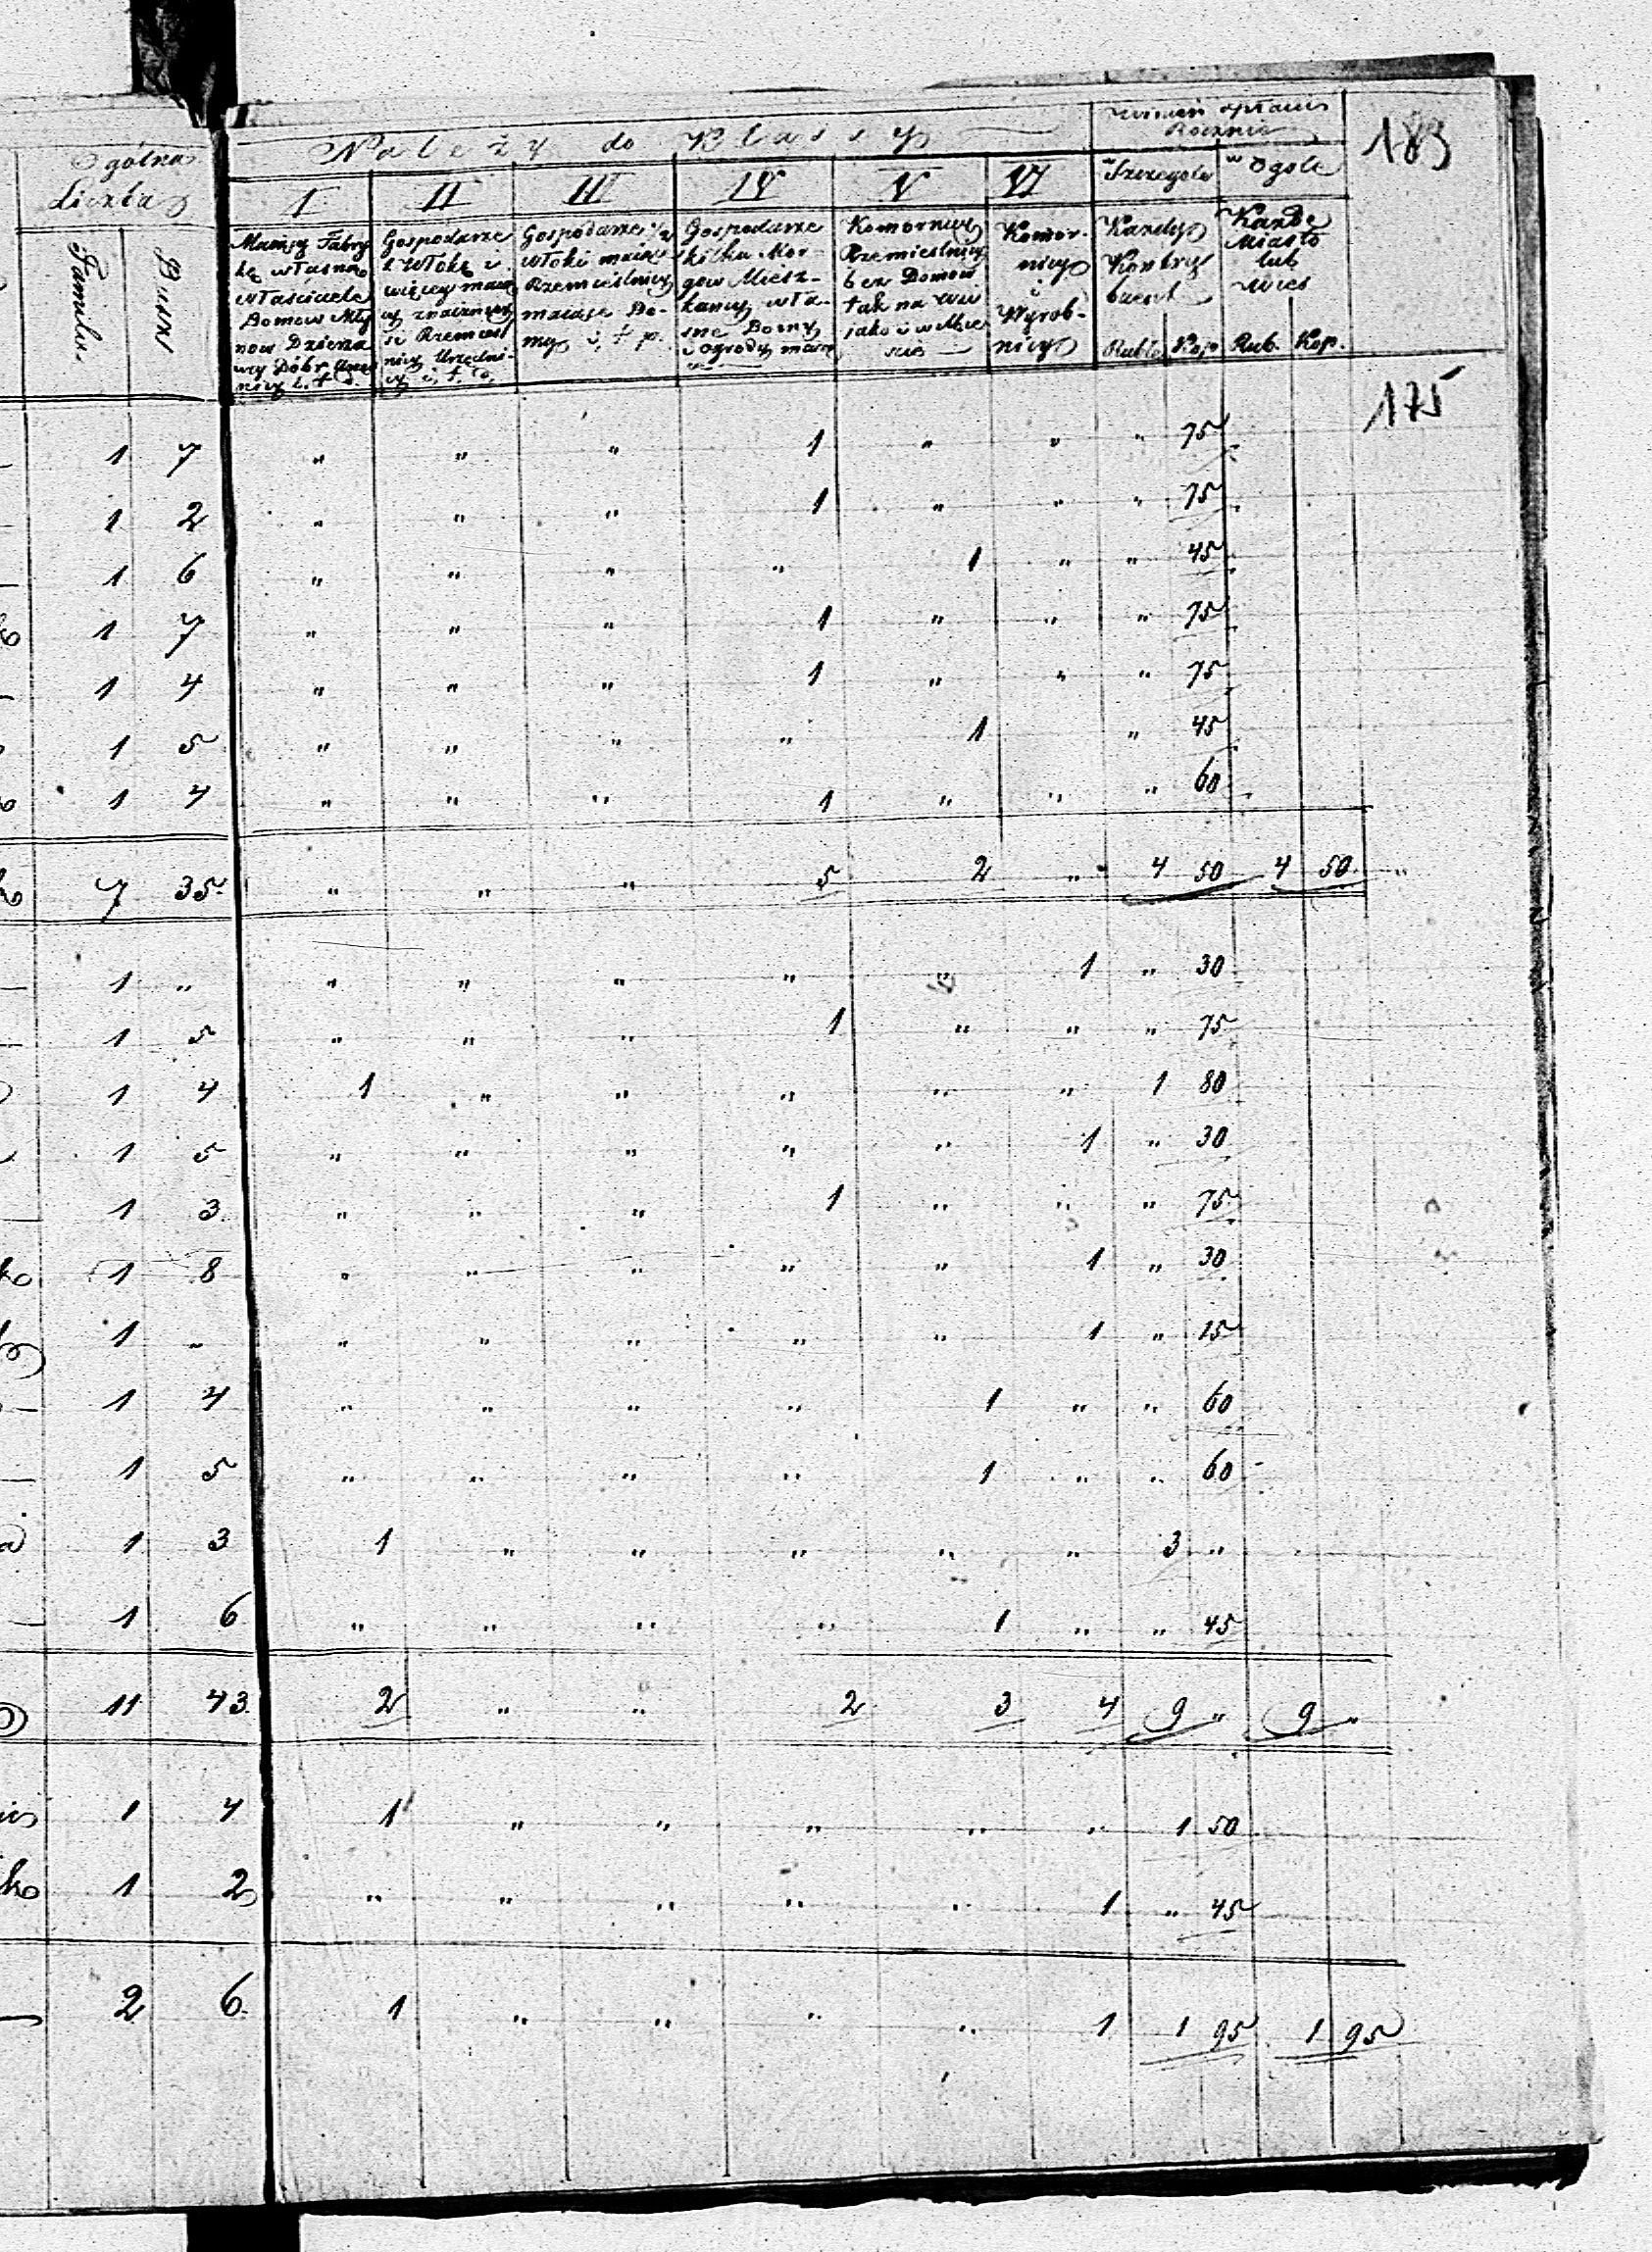 183
Ogólna
Liczba
Familii
Dusz
Należy do Klassy
winien opłacić
Rocznie
I
II
III
IV
V
VI
w Szczegole
w Ogole
Mający Fabry
kę własną
właściciele
Domow Mły
now Dzierża
wcy Dóbr Urzę
nicy i. t. d.
Gospodarze
z Włóką i
więcej mają
cy znaczniej
si Rzemieśl
nicy Urzędni-
cy i. t. p.
Gospodarze ½
włoki mają
Rzemieślnicy
mające Do-
my i. t. p.
Gospodarze
kilka Mor-
gow Miesz-
kańcy wła-
sne Domy
i ogrody mają
Komornicy
Rzemieślnicy
bez Domow
tak na wsi
jako i w Mie
ście
Komor-
nicy
i
Wyrob-
nicy
Każdy
Kontry
buent
Ruble Kop
Każde
Miasto
lub
wieś
Rub. Kop.
175
1 7 " " " 1 " " " 75
1 2 " " " 1 " " " 75
1 6 " " " " 1 " " 45
1 7 " " " 1 " " " 75
1 4 " " " 1 " " " 75
1 5 " " " " 1 " 45
1 4 " " " 1 " " " 60
7 35 " " " 5 2 " 4 50 4 50
1 " " " " " " 1 " 30
1 5 " " " 1 " " " 75
1 4 1 " " " " " 1 80
1 5 " " " " " 1 " 30
1 3 " " " 1 " " " 75
1 8 " " " " " 1 " 30
1 " " " " " " 1 " 15
1 4 " " " " 1 " " 60
1 5 " " " " 1 " " 60
1 3 1 " " " " " 3 "
1 6 " " " " 1 " " 45
11 43 2 " " 2 3 4 9 " 9 "
1 4 1 " " " " " 1 50
1 2 " " " " " 1 " 45
2 6 1 " " " " 1 1 95 1 95